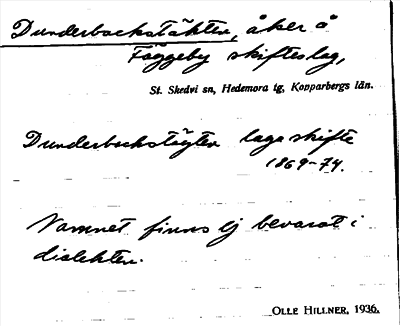 Dunderbackstäkten, åker å
Fäggeby skifteslag,
St. Skedvi sn, Hedemora tg, Kopparbergs län.
Dunderbockstägten laga skifte
1869-74.
Namnet finns ej bevarat i
dialekten.
OLLE HILLNER, 1936.